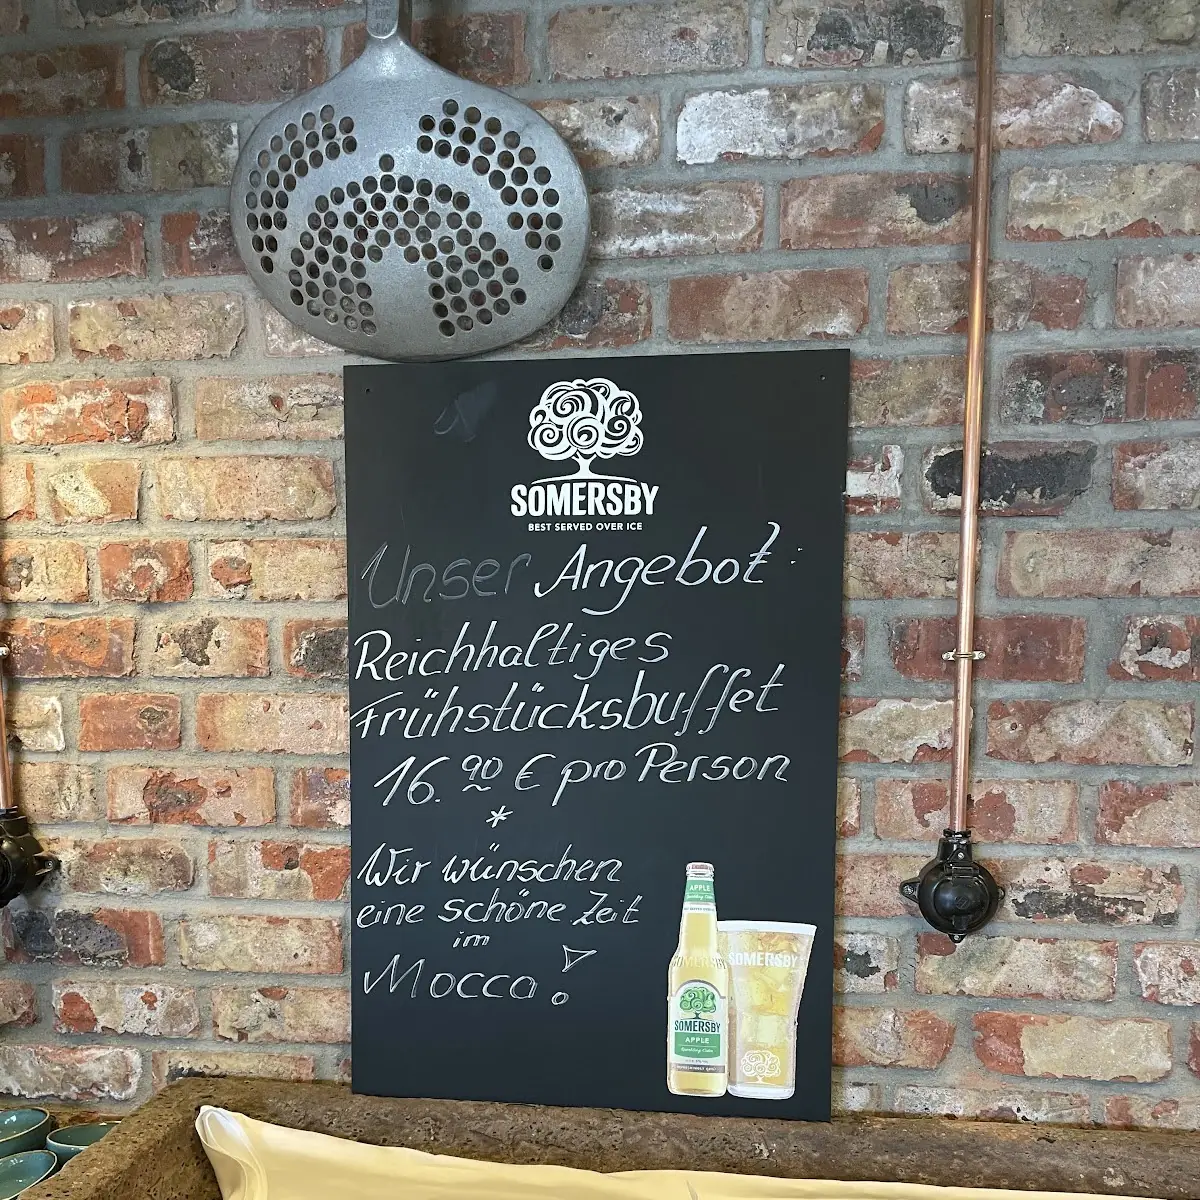 SOMERSBY
BEST SERVED OVER ICE
Unser Angebot:
Reichhaltiges
Frühstücksbuffet
16.90 € pro Person
*
Wir wünschen
eine schöne Zeit
im
Mocca!
APPLE
SOMERSBY
SOMERSBY
SOMERSBY
APPLE
Sparkling Cider